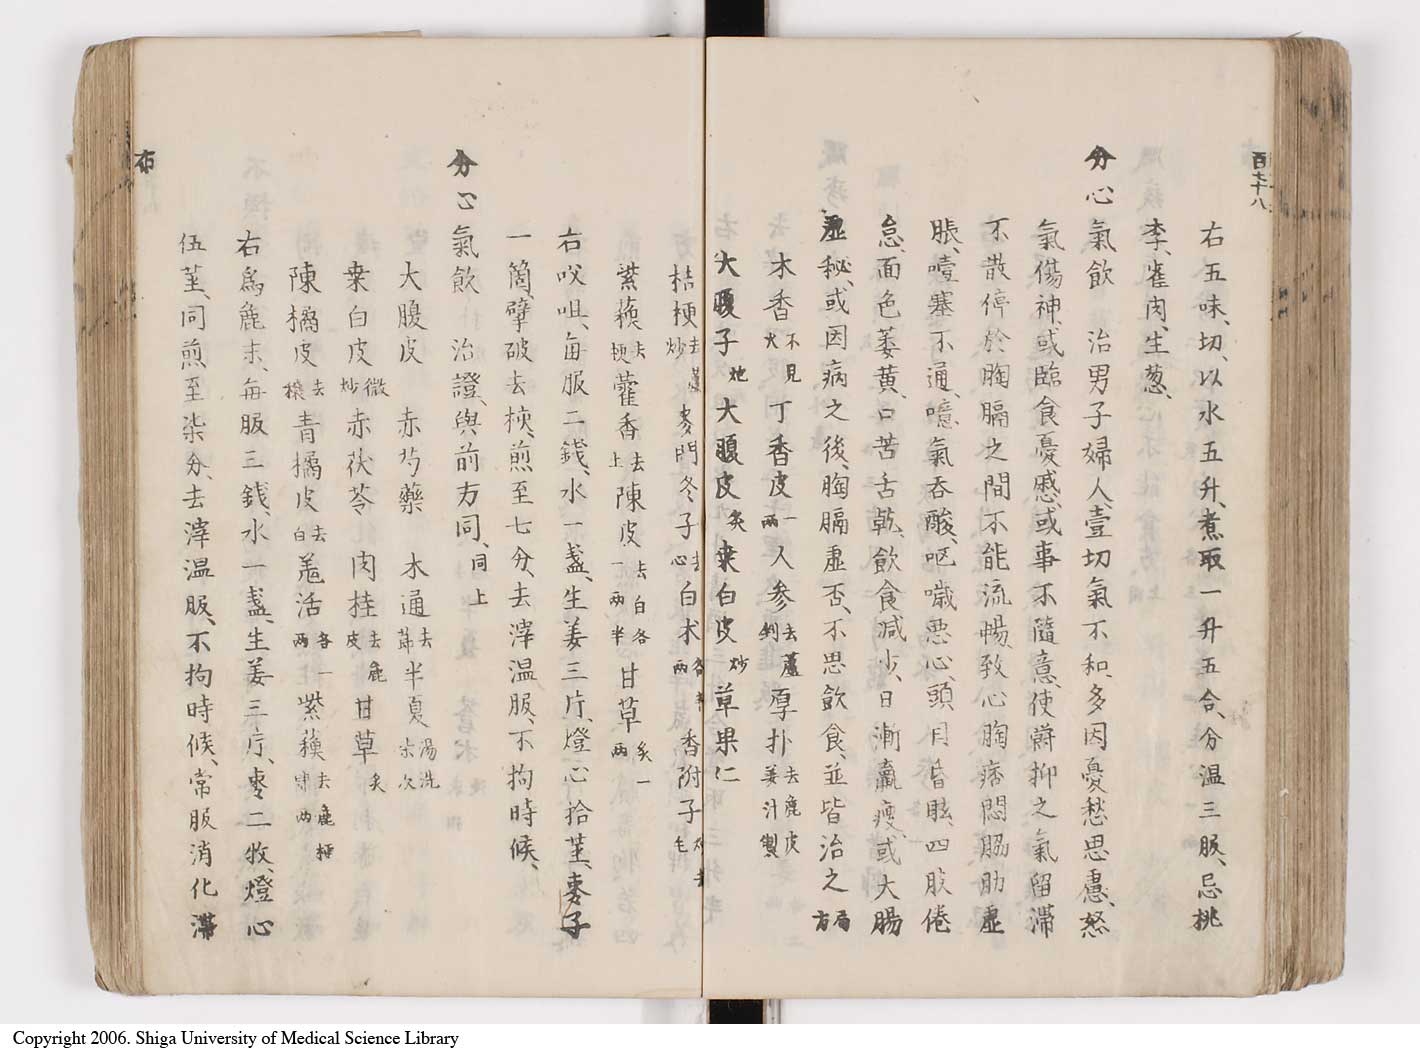 百七十八
右五味、切、以水五升、煮取一升五合、分温三服、忌桃
李、雀肉、生葱、
分心氣飲　治男子婦人、壹切氣不和、多因憂愁思慮、怒
氣傷神、或臨食憂慼、或事不隨意、使欝抑之氣留滯
不散、停於胸膈之間、不能流暢、致心胸痞悶、脇肋虚
脹、噎塞不通、噫氣呑酸、呕噦悪心、頭目昏眩、四肢倦
怠、面色萎黄、口苦舌乾、飲食減少、日漸羸瘦、或大腸
虚秘、或因病之後、胸膈虚否、不思飲食、並皆治之局方
木香不見火 丁香皮一兩 人参去蘆剉 厚扑去麁皮姜汁製
大腹子炮 大腹皮炙 桒白皮炒 草果仁
桔梗去蘆炒 麦門冬子去心 白术各半兩 香附子炒去毛
紫蘓去梗 藿香去上 陳皮去白各一兩半 甘草炙一兩
右㕮咀、毎服二錢、水一盞、生姜三片、燈心拾莖、棗子
一箇、擘破去核、煎至七分、去滓温服、不拘時候、
分心氣飲　治證、與前方同、同上
大腹皮　赤芍藥　木通去節 半夏湯洗柒次
桒白皮微炒 赤茯苓　肉桂去麁皮 甘草炙
陳橘皮去穰 青橘皮去白 羗活各一兩 紫蘓去麁梗肆兩
右為麁末、毎服三錢、水一盞、生姜三片、棗二枚、燈心
伍莖、同煎至柒分、去滓温服、不拘時候、常服消化滯
布
Copyright 2006. Shiga University of Medical Science Library